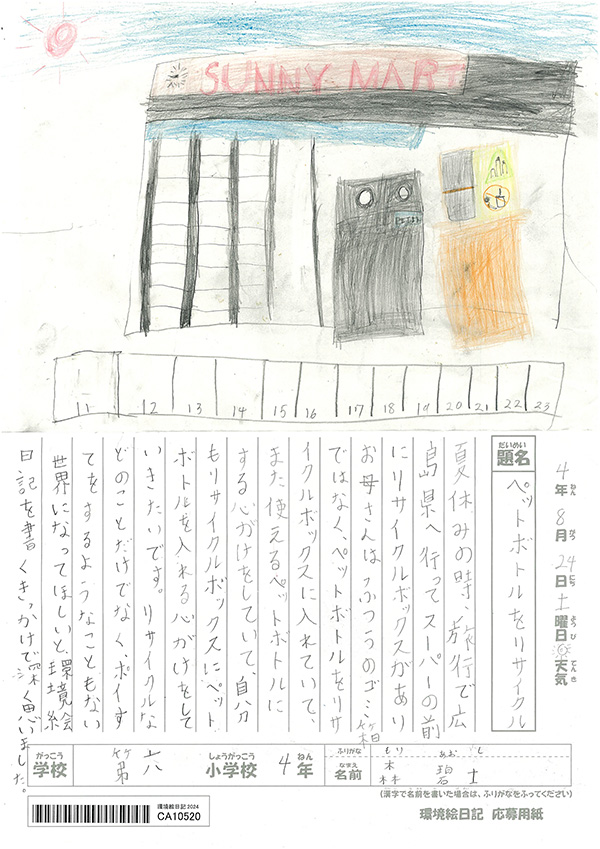 SUNNY MART
11 12 13 14 15 16 17 18 19 20 21 22 23
4年8月24日土曜日天気
ねん がつ にち ようび てんき
だいめい
題名
ペットボトルをリサイクル
夏休みの時、旅行で広
島県へ行ってスーパーの前
にリサイクルボックスがあり
お母さんは、ふつうのゴミ箱
ではなく、ペットボトルをリサ
イクルボックスに入れていて、
また使えるペットボトルに
する心がけをしていて、自分
もリサイクルボックスにペット
ボトルを入れる心がけをして
いきたいです。リサイクルな
どのことだけでなく、ポイす
てをするようなこともない
世界になってほしいと、環境絵
日記を書くきっかけで深く思いました。
がっこう
学校
第六
しょうがっこう
小学校
4年
ねん
ふりがな
もり あお し
なまえ
名前
森 碧士
(漢字で名前を書いた場合は、ふりがなをふってください)
環境絵日記 2024
CA10520
環境絵日記 応募用紙